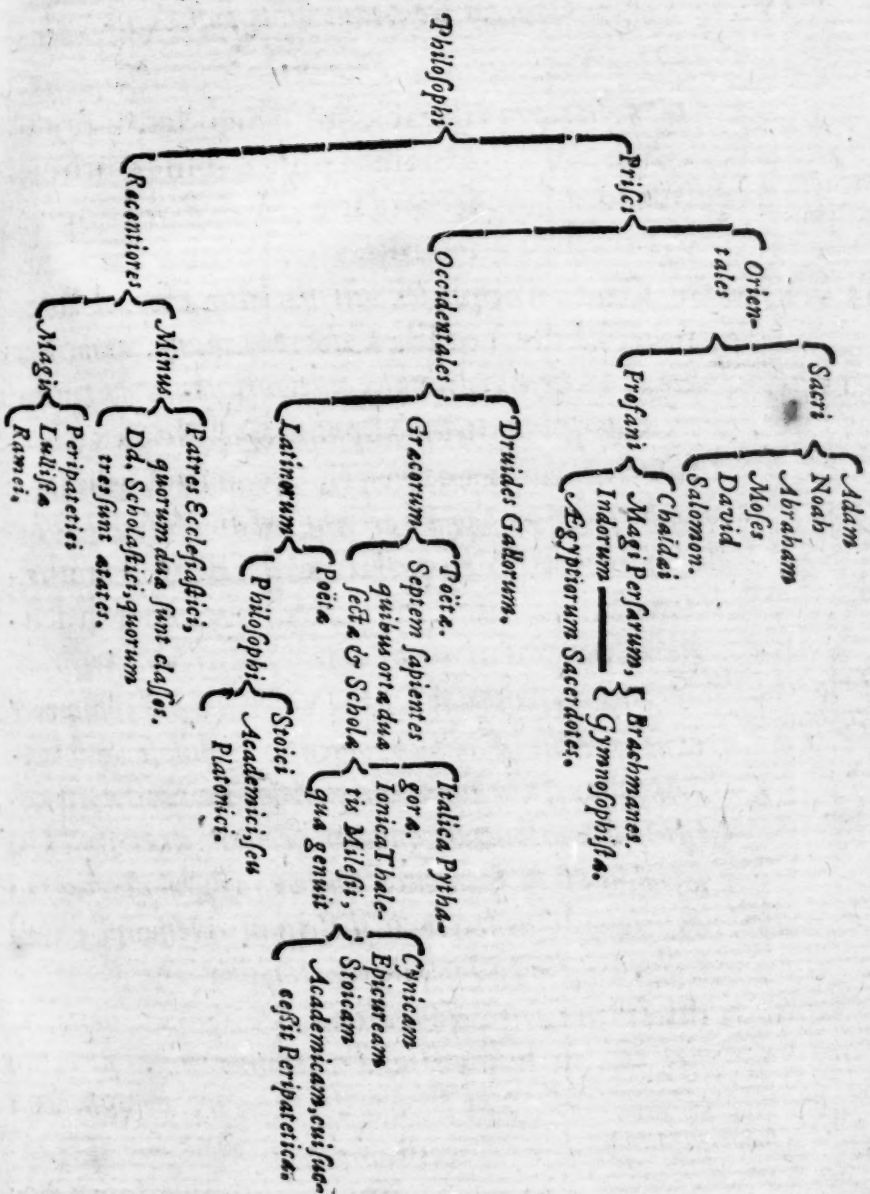 Philoſophi
Priſci
Orien-
tales
Sacri
Adam
Noah
Abraham
Moſes
David
Salomon.
Profani
Chaldæi
Magi Perſarum,
Indorum
Brachmanes.
Gymnoſophiſtæ.
Ægyptiorum Sacerdotes.
Occidentales
Druides Gallorum.
Græcorum
Poëtæ.
Septem ſapientes
quibus ortæ duæ
ſectæ & Scholæ
Italica Pytha-
goræ.
Ionica Thale-
tis Mileſii,
quæ genuit
Cynicam
Epicuream
Stoicam
Academicam, cui ſuc-
ceßit Peripatetica.
Latinorum
Poëtæ
Philoſophi
Stoici
Academici, ſeu
Platonici.
Recentiores
Minus
Patres Eccleſiaſtici,
quorum duæ ſunt claſſes.
Dd. Scholaſtici, quorum
tres ſunt ætates.
Magis
Peripatetici
Lulliſtæ
Ramei.